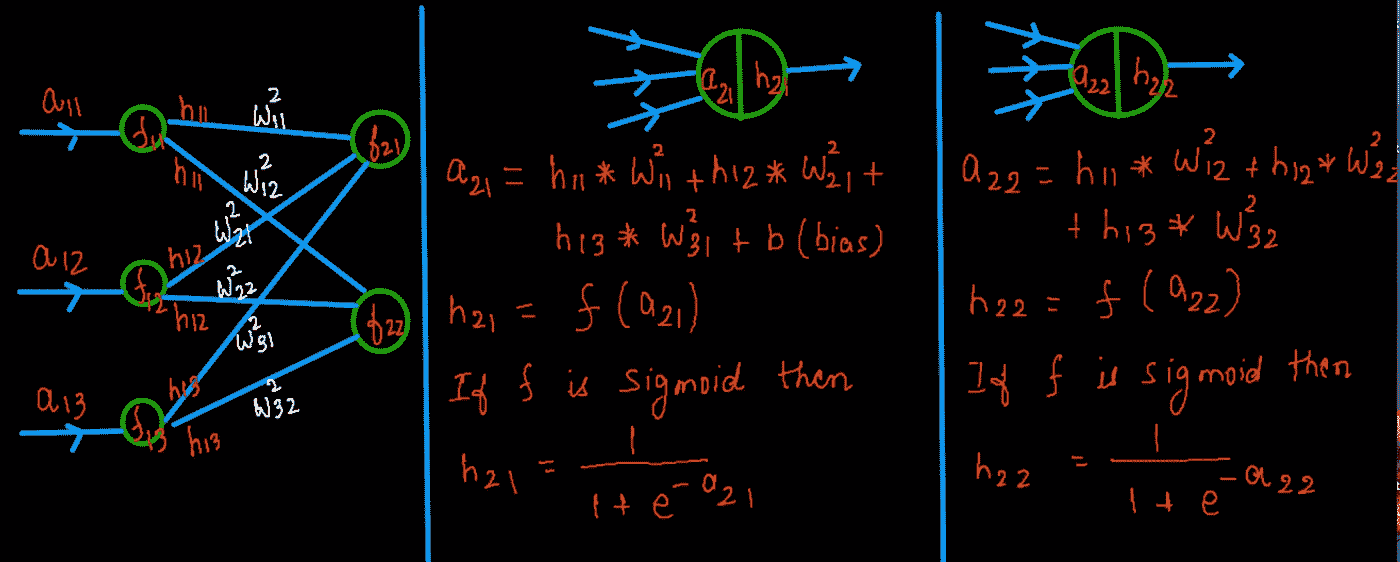 a11
h11
W²11
f11
f21
h11
W²12
W²21
a12
h12
f12
W²22
h12
f22
W²31
a13
h13
f13
W²32
h13
a21 h21
a21 = h11 * W²11 + h12 * W²21 +
h13 * W²31 + b (bias)
h21 = f (a21)
If f is sigmoid then
h21 = 1 / 1 + e^-a21
a22 h22
a22 = h11 * W²12 + h12 * W²22
+ h13 * W²32
h22 = f (a22)
If f is sigmoid then
h22 = 1 / 1 + e^-a22